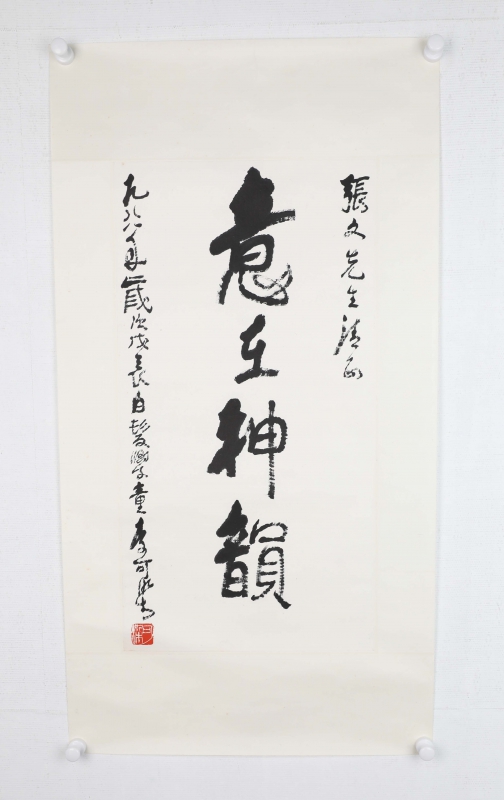 張文先生清正
意在神韻
九八八年歲次戊辰白髮學童李可染
可染